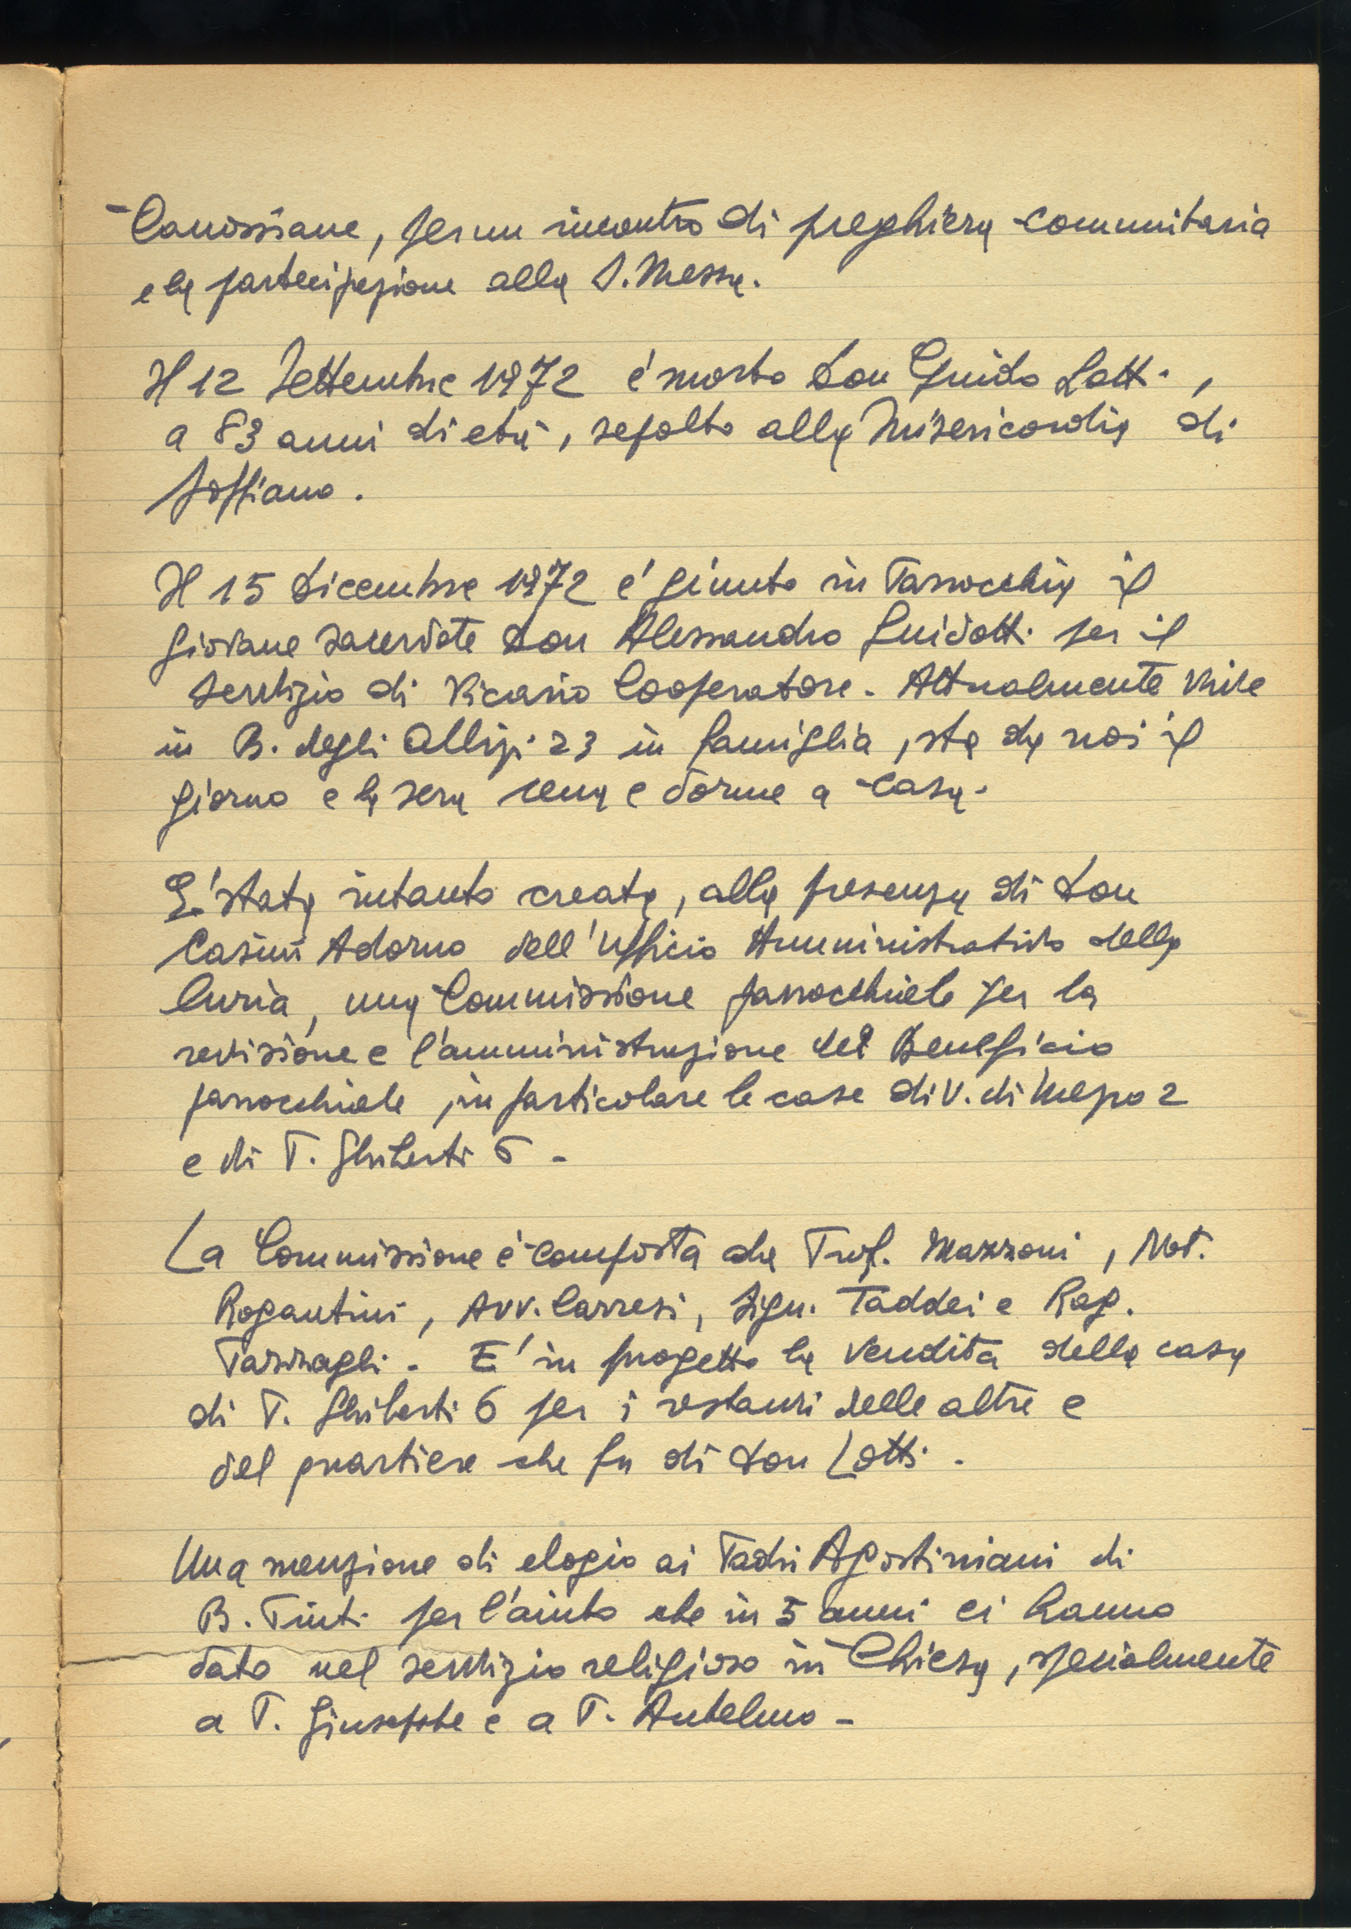 Canossiane, per un incontro di preghiera comunitaria
e la partecipazione alla S. Messa.
Il 12 Settembre 1972 é morto Don Guido Lotti,
a 83 anni di età, sepolto alla Misericordia di
Soffiano.
Il 15 Dicembre 1972 é giunto in Parrocchia il
giovane sacerdote Don Alessandro Guidotti per il
servizio di Vicario Cooperatore. Attualmente vive
in B. degli Albizi 23 in famiglia, sta da noi il
giorno e la sera cena e dorme a casa.
E' stata intanto creata, alla presenza di Don
Casini Adorno dell'Ufficio Amministrativo della
Curia, una Commissione parrocchiale per la
revisione e l'amministrazione del Beneficio
parrocchiale, in particolare le case di V. di Mezzo 2
e di P. Ghiberti 6 -
La Commissione é composta da Prof. Mazzoni, Not.
Rogantini, Avv. Carresi, Sign. Taddei e Rag.
E' in progetto la vendita della casa
di P. Ghiberti 6 per i restauri delle altre e
del quartiere che fu di Don Lotti.
Una menzione di elogio ai Padri Agostiniani di
B. Pinti per l'aiuto che in 5 anni ci hanno
dato nel servizio religioso in Chiesa, specialmente
a P. Giuseppe e a P. Antelmo -